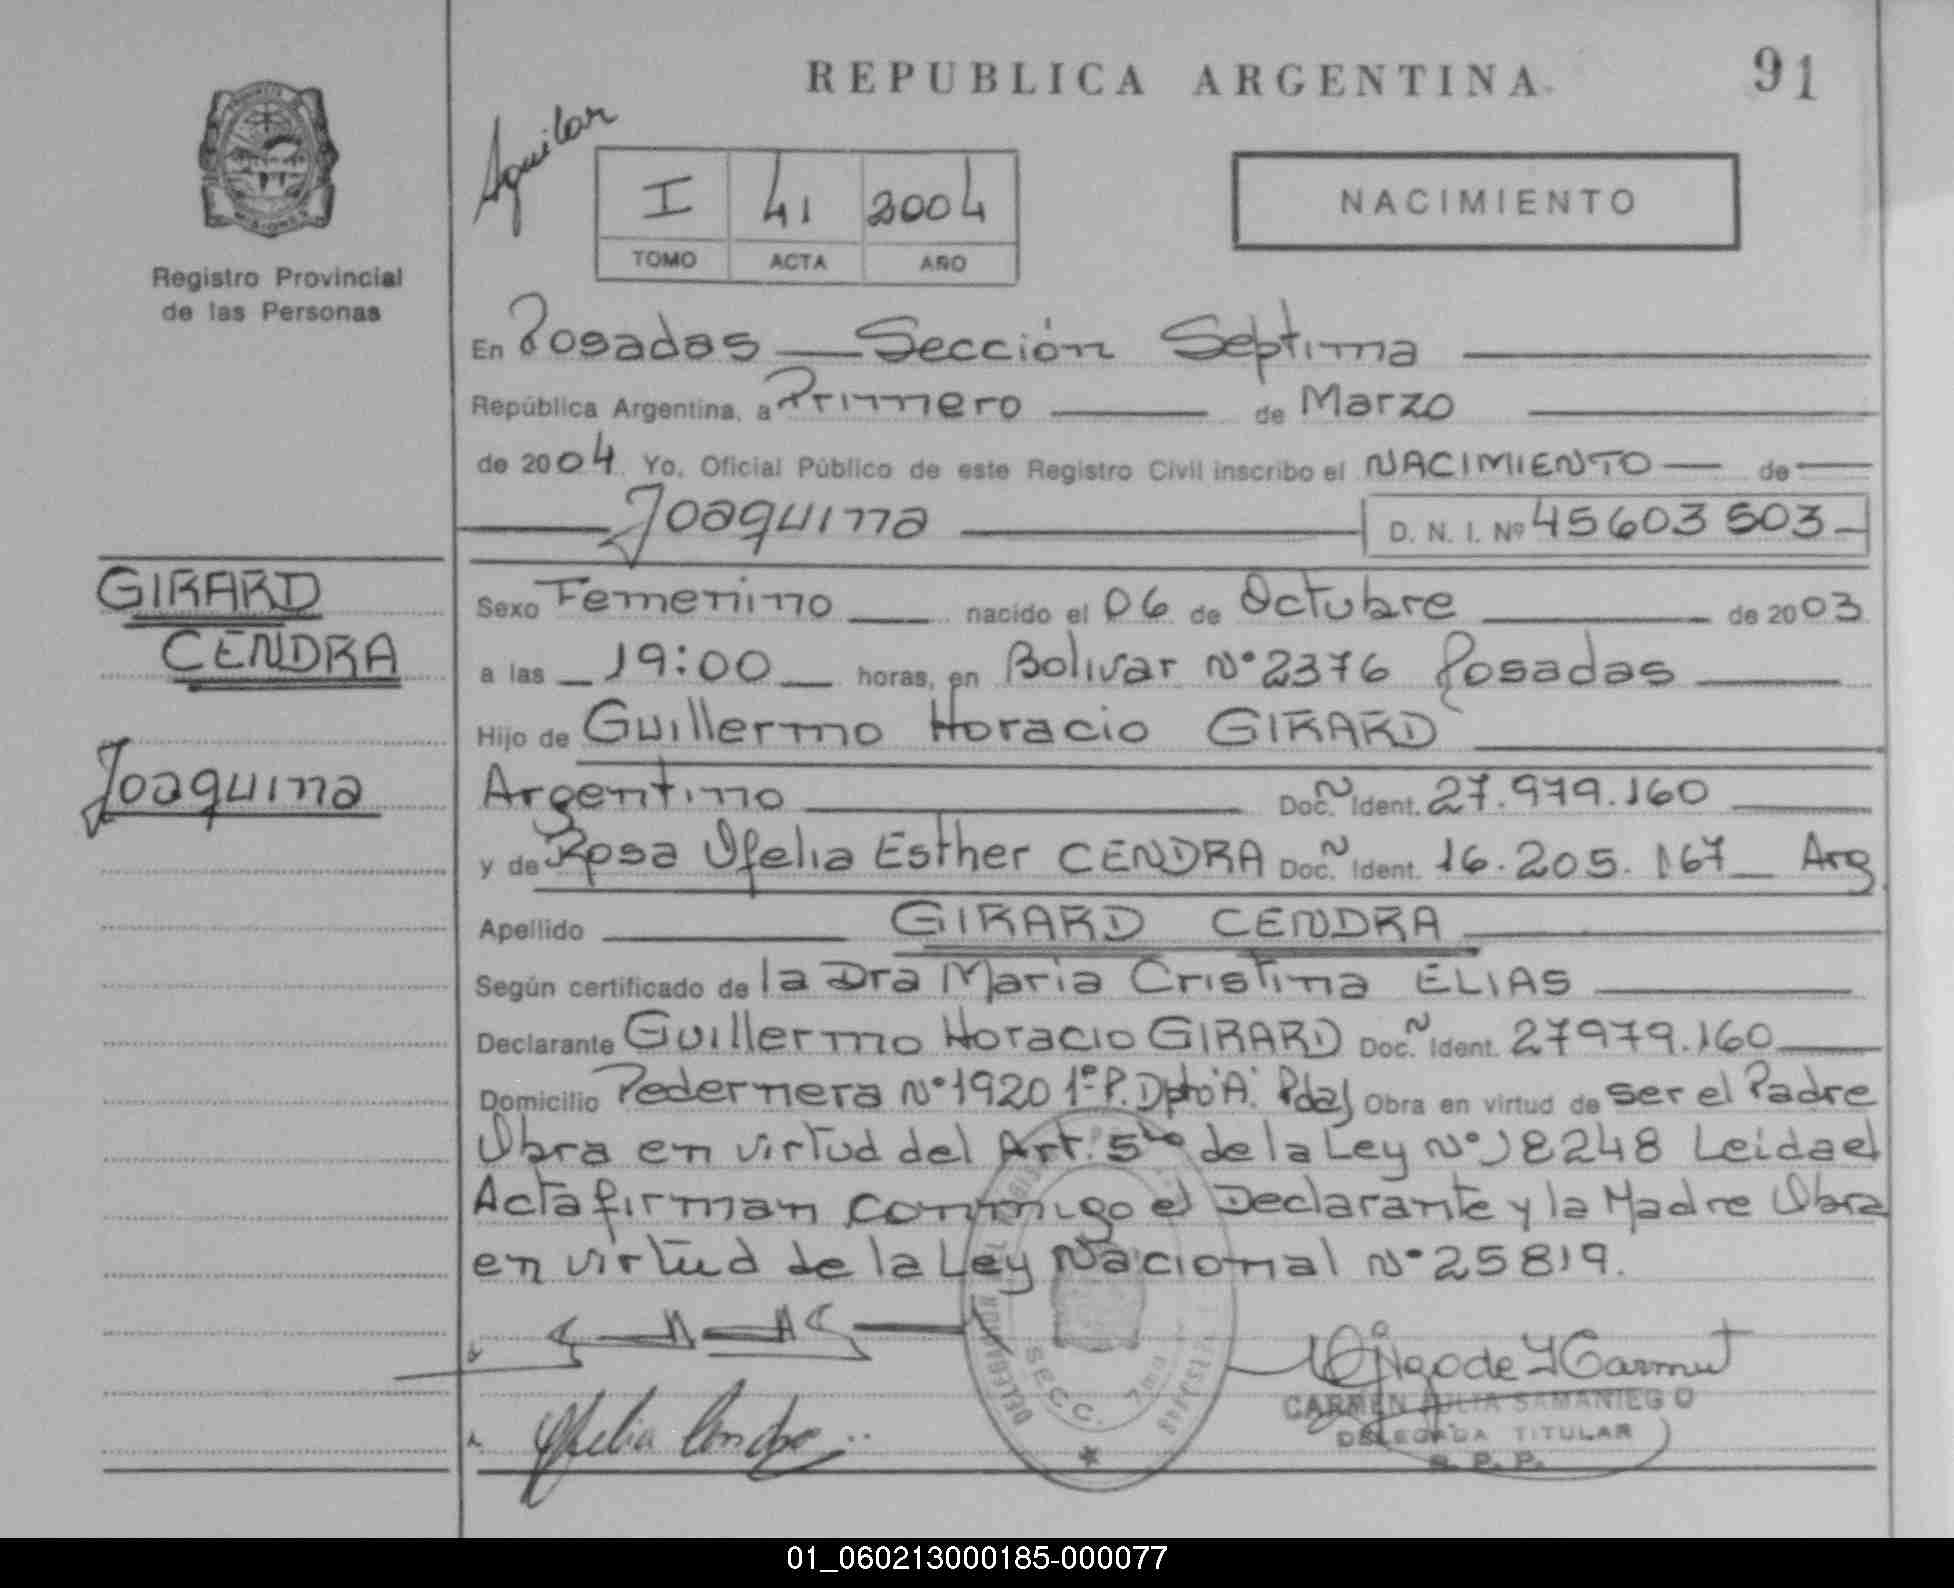 REPUBLICA ARGENTINA
91
Aguilar
I 41 2004
TOMO ACTA AÑO
NACIMIENTO
Registro Provincial
de las Personas
En Posadas — Sección Septima
República Argentina, a Primero de Marzo
de 2004 Yo, Oficial Público de este Registro Civil inscribo el NACIMIENTO — de
Joaquina D. N. I. Nº 45603503
GIRARD
CENDRA
Joaquina
Sexo Femenino nacido el 06 de Octubre de 2003
a las 19:00 horas, en Bolivar Nº 2376 Posadas
Hijo de Guillermo Horacio GIRARD
Argentino Doc. Ident. 27.979.160
y de Rosa Ofelia Esther CENDRA Doc. Ident. 16.205.167 Arg
Apellido GIRARD CENDRA
Según certificado de la Dra Maria Cristina ELIAS
Declarante Guillermo Horacio GIRARD Doc. Ident. 27979.160
Domicilio Pedernera Nº 1920 1º P. Dpto "A". Pdas Obra en virtud de ser el Padre
Obra en virtud del Art. 5to de la Ley Nº 18248 Leida el
Acta firman conmigo el Declarante y la Madre Obra
en virtud de la Ley Nacional Nº 25819.
SECC. 7ma
Ofelia Cendra
CARMEN JULIA SAMANIEGO
DELEGADA TITULAR
R. P. P.
01_060213000185-000077